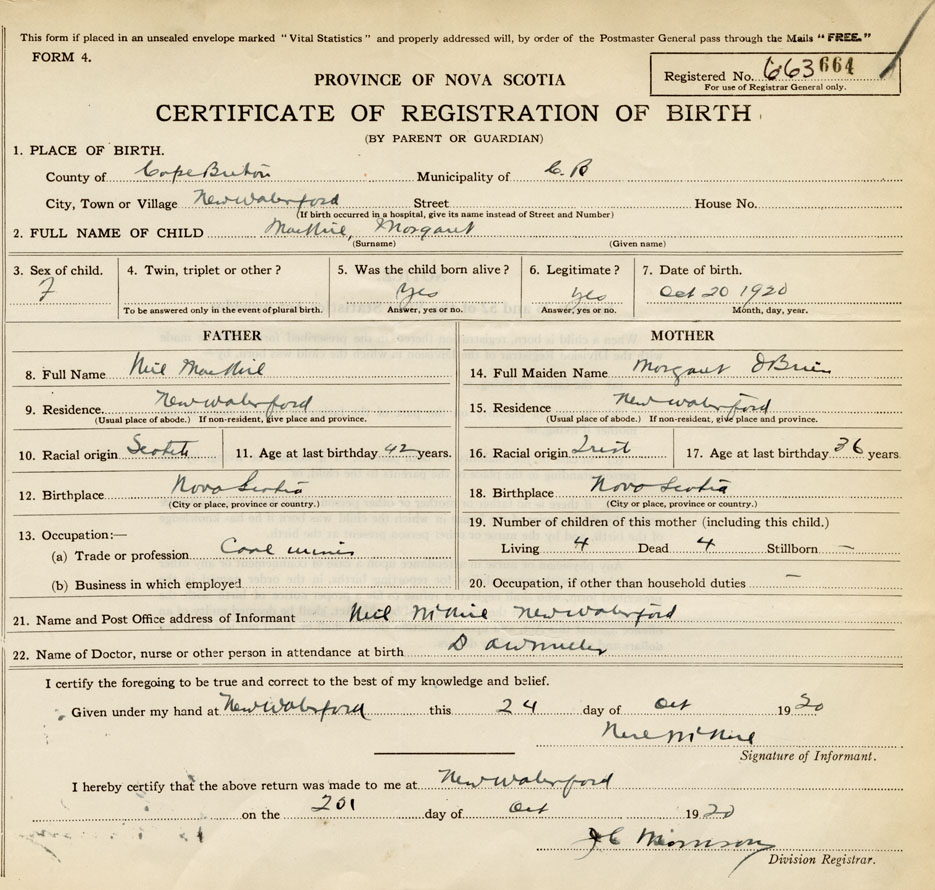 This form if placed in an unsealed envelope marked "Vital Statistics" and properly addressed will, by order of the Postmaster General pass through the Mails "FREE."
FORM 4.
PROVINCE OF NOVA SCOTIA
Registered No. 663 664
For use of Registrar General only.
CERTIFICATE OF REGISTRATION OF BIRTH
(BY PARENT OR GUARDIAN)
1. PLACE OF BIRTH.
County of Cape Breton Municipality of C. B
City, Town or Village New Waterford Street House No.
(If birth occurred in a hospital, give its name instead of Street and Number)
2. FULL NAME OF CHILD MacNeil, Margaret
(Surname) (Given name)
3. Sex of child. 4. Twin, triplet or other? 5. Was the child born alive? 6. Legitimate? 7. Date of birth.
F yes yes Oct 20 1920
To be answered only in the event of plural birth. Answer, yes or no. Answer, yes or no. Month, day, year.
FATHER MOTHER
8. Full Name Neil MacNeil 14. Full Maiden Name Margaret O'Brien
9. Residence New Waterford 15. Residence New Waterford
(Usual place of abode.) If non-resident, give place and province. (Usual place of abode.) If non-resident, give place and province.
10. Racial origin Scotch 11. Age at last birthday 42 years. 16. Racial origin Irish 17. Age at last birthday 36 years
12. Birthplace Nova Scotia 18. Birthplace Nova Scotia
(City or place, province or country.) (City or place, province or country.)
13. Occupation:— 19. Number of children of this mother (including this child.)
(a) Trade or profession Coal miner Living 4 Dead 4 Stillborn —
(b) Business in which employed 20. Occupation, if other than household duties —
21. Name and Post Office address of Informant Neil McNeil New Waterford
22. Name of Doctor, nurse or other person in attendance at birth
I certify the foregoing to be true and correct to the best of my knowledge and belief.
Given under my hand at New Waterford this 24 day of Oct 1920
Neil McNeil
Signature of Informant.
I hereby certify that the above return was made to me at New Waterford
on the day of Oct 1920
J C Morrison
Division Registrar.